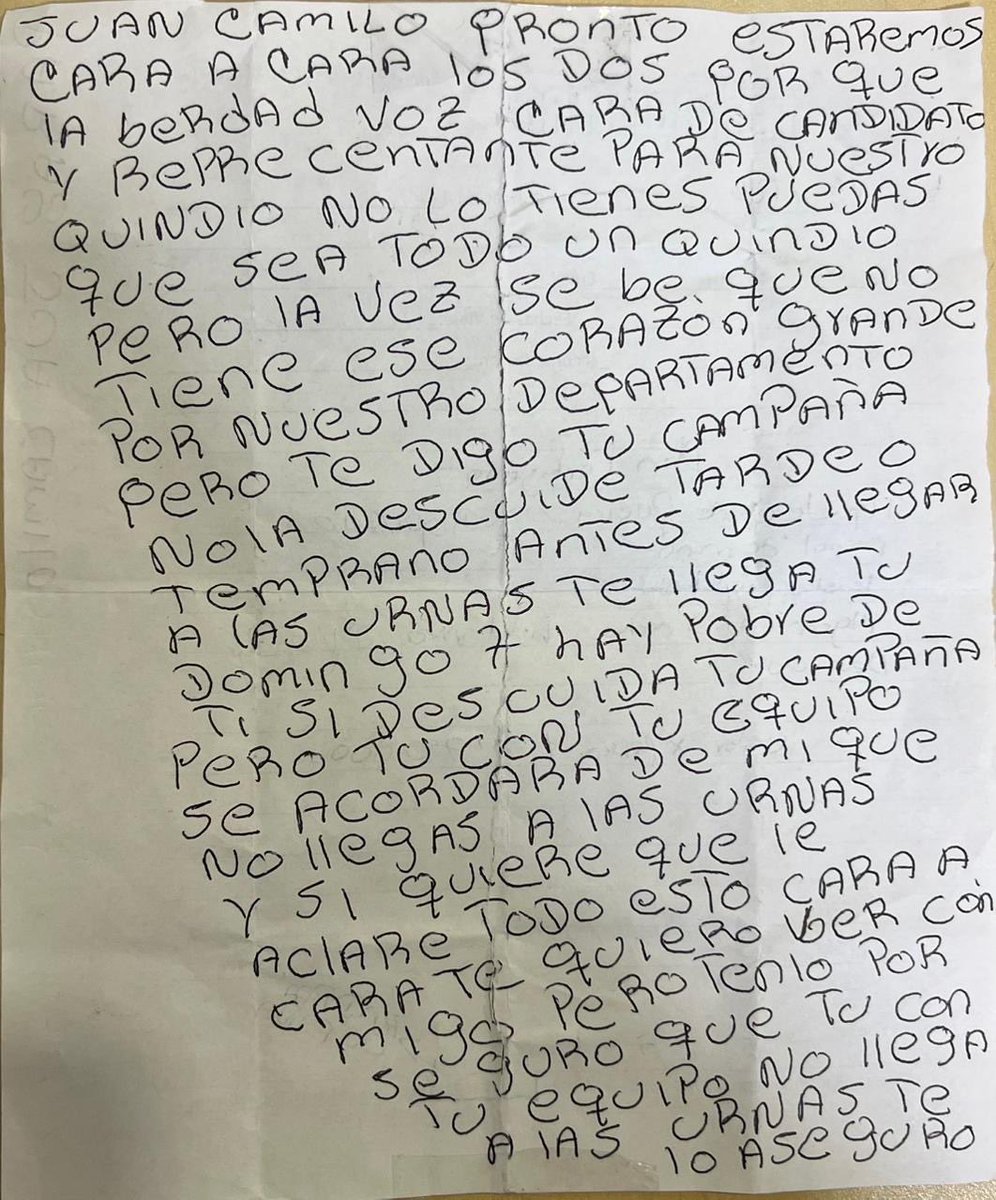 JUAN CAMILO PRONTO ESTAREMOS
CARA A CARA los DOS POR que
lA berdAd VOZ CARA De CANDIDATO
Y RePRe ceNTANTe PARA NuesTro
QUINDIO NO LO Tienes PUEDAS
que SeA TODO un QUINDIO
PeRO lA vez Se be. que NO
Tiene ese CORAZON grANDe
POR NuesTRO DePARTAmeNTO
PeRO Te Digo TU CAMPAÑA
NO lA DescuiDe TARDe O
TemPRANO ANTes De llegAR
A lAS URNAS Te llegA TU
Domingo 7 hAY Pobre De
Ti Si DescuiDA TU CAMPAÑA
PeRO TU CON TU eQUIPO
Se ACORDARA De mi que
NO llegAS A lAS URNAS
Y Si quieRe que le
AClARe TODO esTO CARA A
CARA Te quiero ber con
migo PeRO Tenlo POR
Se guRO que Tu con
TU equiPO NO llegA
A lAS URNAS Te
lo ASeguRO